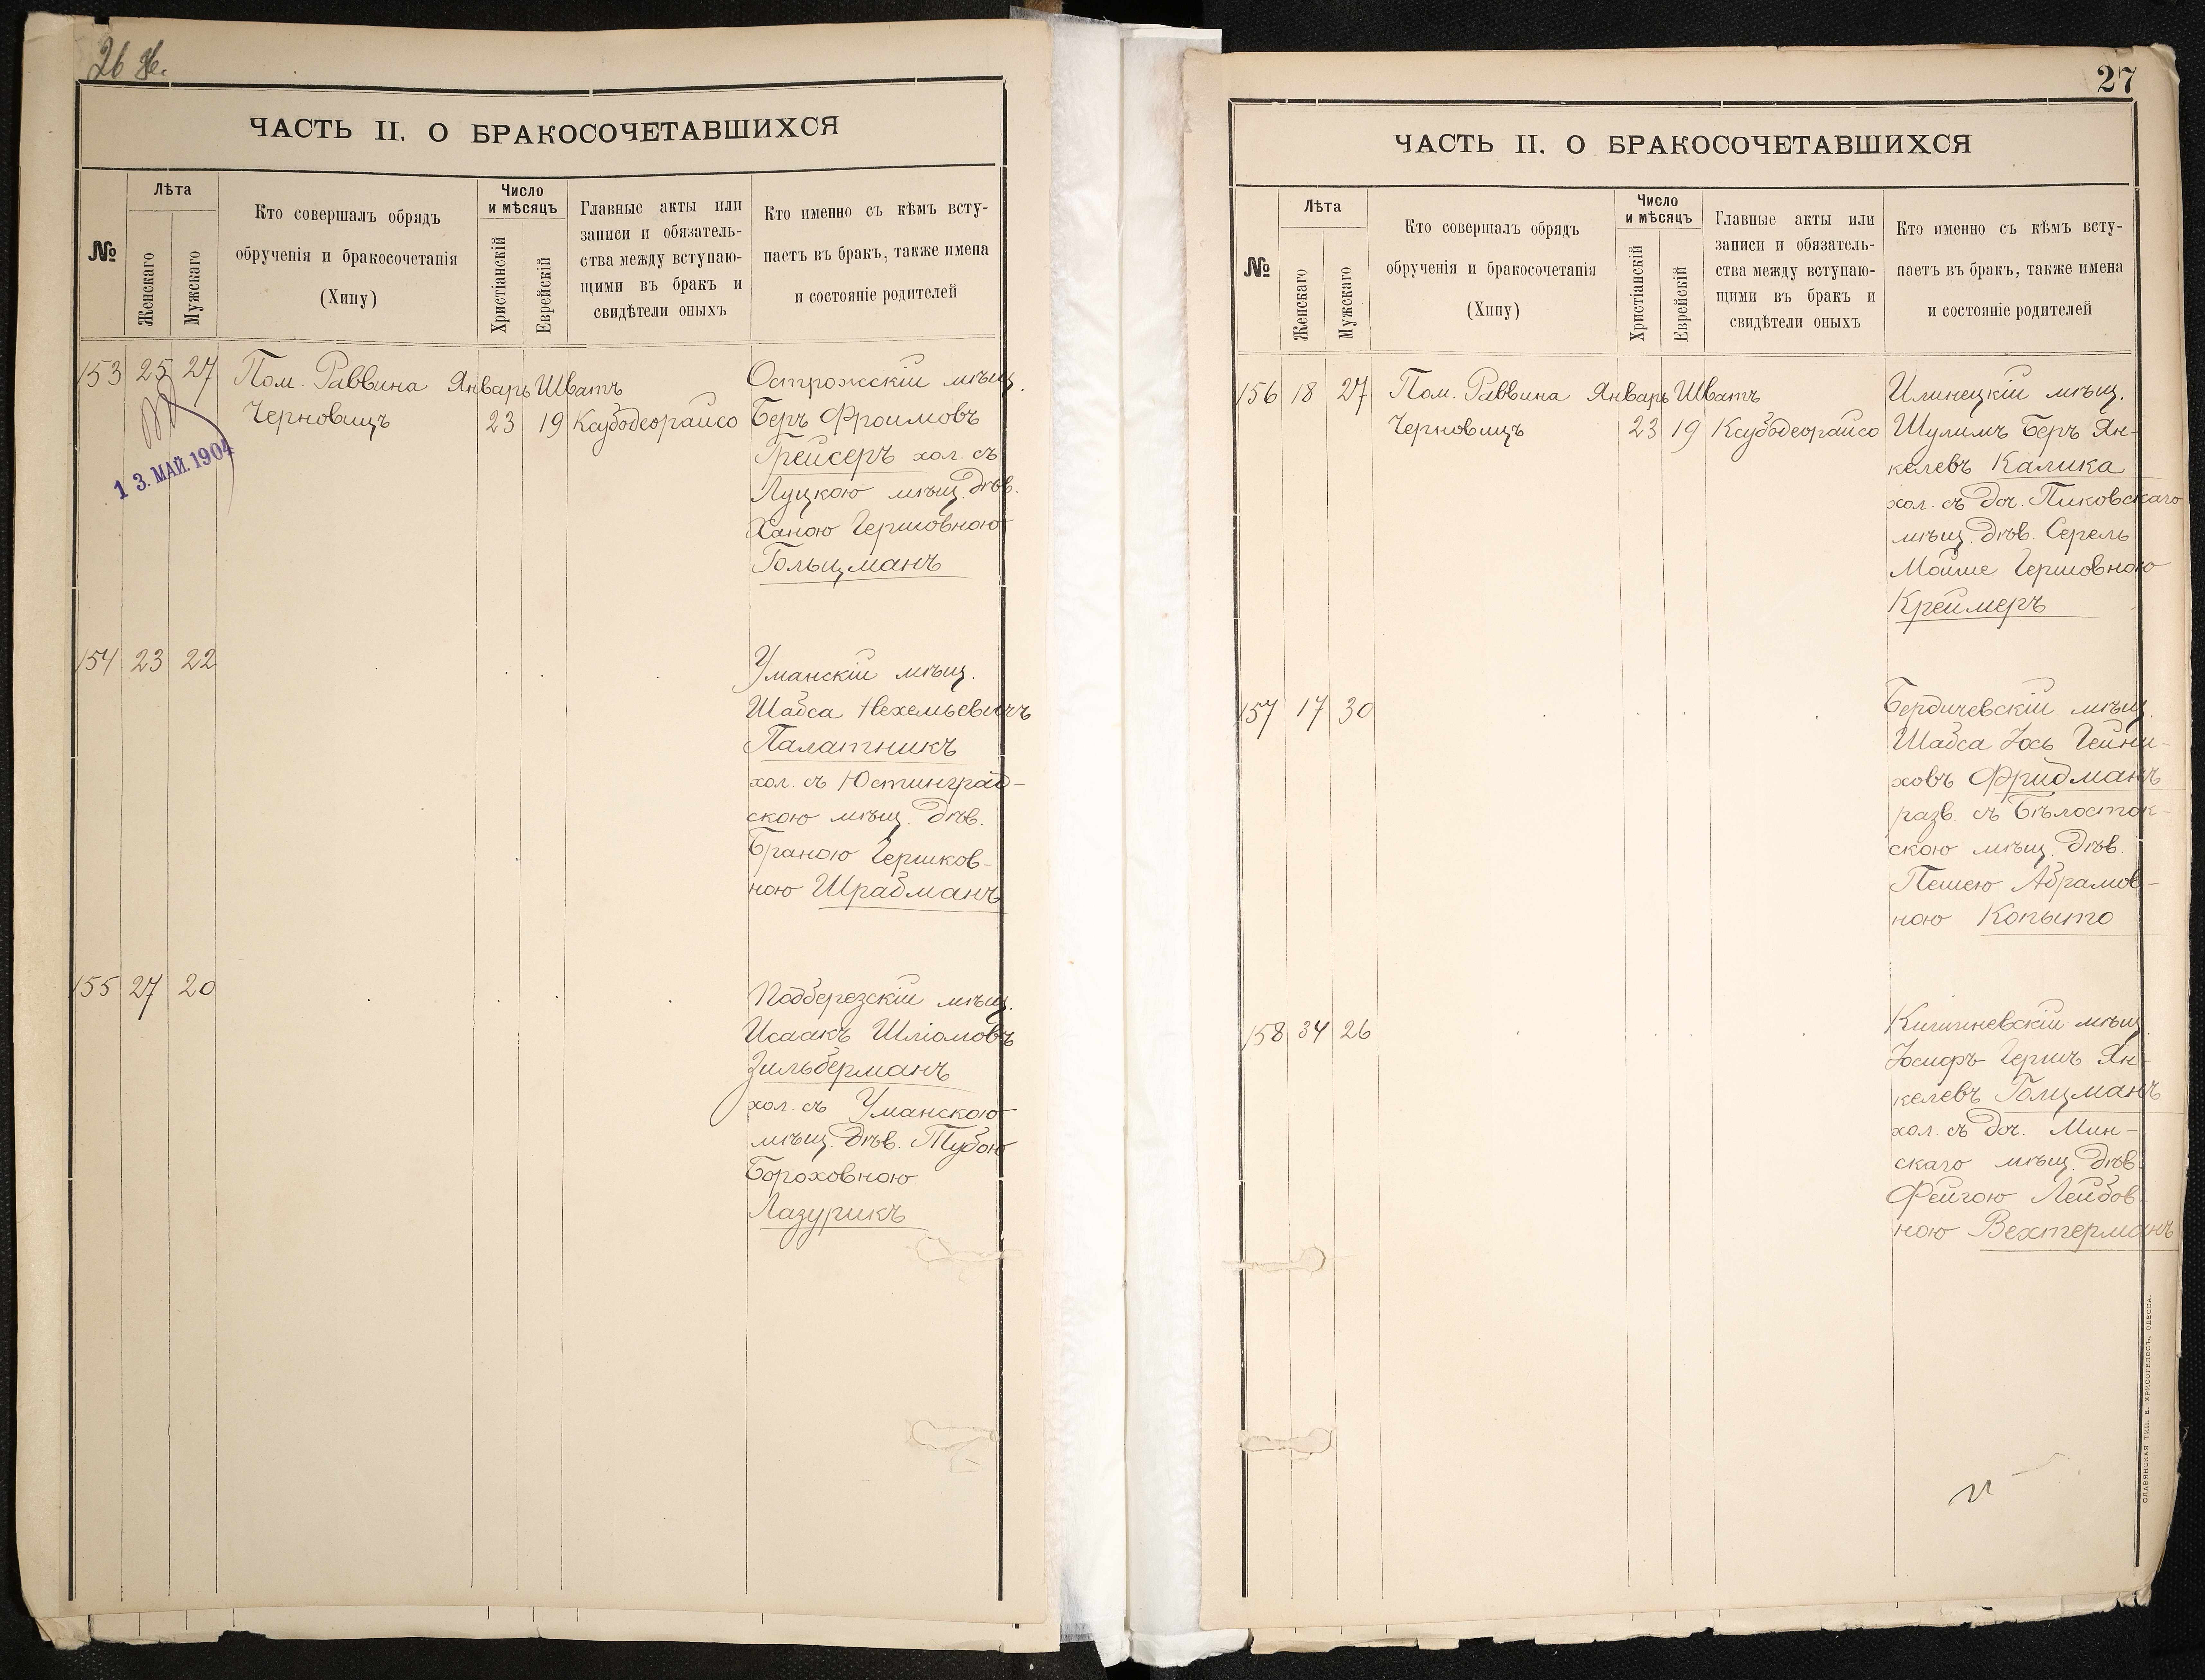 26
ЧАСТЬ II. О БРАКОСОЧЕТАВШИХСЯ
№
Лѣта
Женскаго
Мужскаго
Кто совершалъ обрядъ
обрученія и бракосочетанія
(Хипу)
Число
и мѣсяцъ
Христіанскій
Еврейскій
Главные акты или
записи и обязатель-
ства между вступаю-
щими въ бракъ и
свидѣтели оныхъ
Кто именно съ кѣмъ всту-
паетъ въ бракъ, также имена
и состояніе родителей
153 25 27 Пом. Раввина Январь Шватъ
Черновицъ 23 19 Ксубодеорайсо
Острожскій мѣщ.
Беръ Фроимовъ
Грейсеръ хол. съ
Луцкою мѣщ. дѣв.
Ханою Гершовною
Гольцманъ
13. МАЙ. 1904
154 23 22
Уманскій мѣщ.
Шабса Нехемьевичъ
Палатникъ
хол. съ Юстинград-
скою мѣщ. дѣв.
Браною Гершков-
ною Шрабманъ
155 27 20
Подберезскій мѣщ.
Исаакъ Шліомовъ
Зильберманъ
хол. съ Уманскою
мѣщ. дѣв. Тубою
Бороховною
Лазурикъ
27
ЧАСТЬ II. О БРАКОСОЧЕТАВШИХСЯ
№
Лѣта
Женскаго
Мужскаго
Кто совершалъ обрядъ
обрученія и бракосочетанія
(Хипу)
Число
и мѣсяцъ
Христіанскій
Еврейскій
Главные акты или
записи и обязатель-
ства между вступаю-
щими въ бракъ и
свидѣтели оныхъ
Кто именно съ кѣмъ всту-
паетъ въ бракъ, также имена
и состояніе родителей
156 18 27 Пом. Раввина Январь Шватъ
Черновицъ 23 19 Ксубодеорайсо
Илинецкій мѣщ.
Шулимъ Беръ Ян-
келевъ Калика
хол. съ доч. Пиковскаго
мѣщ. дѣв. Серель
Мойше Гершовною
Креймеръ
157 17 30
Бердичевскій мѣщ.
Шабса Іось Гейни-
ховъ Фридманъ
разв. съ Бѣлосток-
скою мѣщ. дѣв.
Пешею Абрамов-
ною Копыто
158 34 26
Кишиневскій мѣщ.
Іосифъ Гершъ Ян-
келевъ Голцманъ
хол. съ доч. Мин-
скаго мѣщ. дѣв.
Фейгою Лейбов-
ною Вехтерманъ
СЛАВЯНСКАЯ ТИП. Е. ХРИСОГЕЛОСЪ, ОДЕССА.